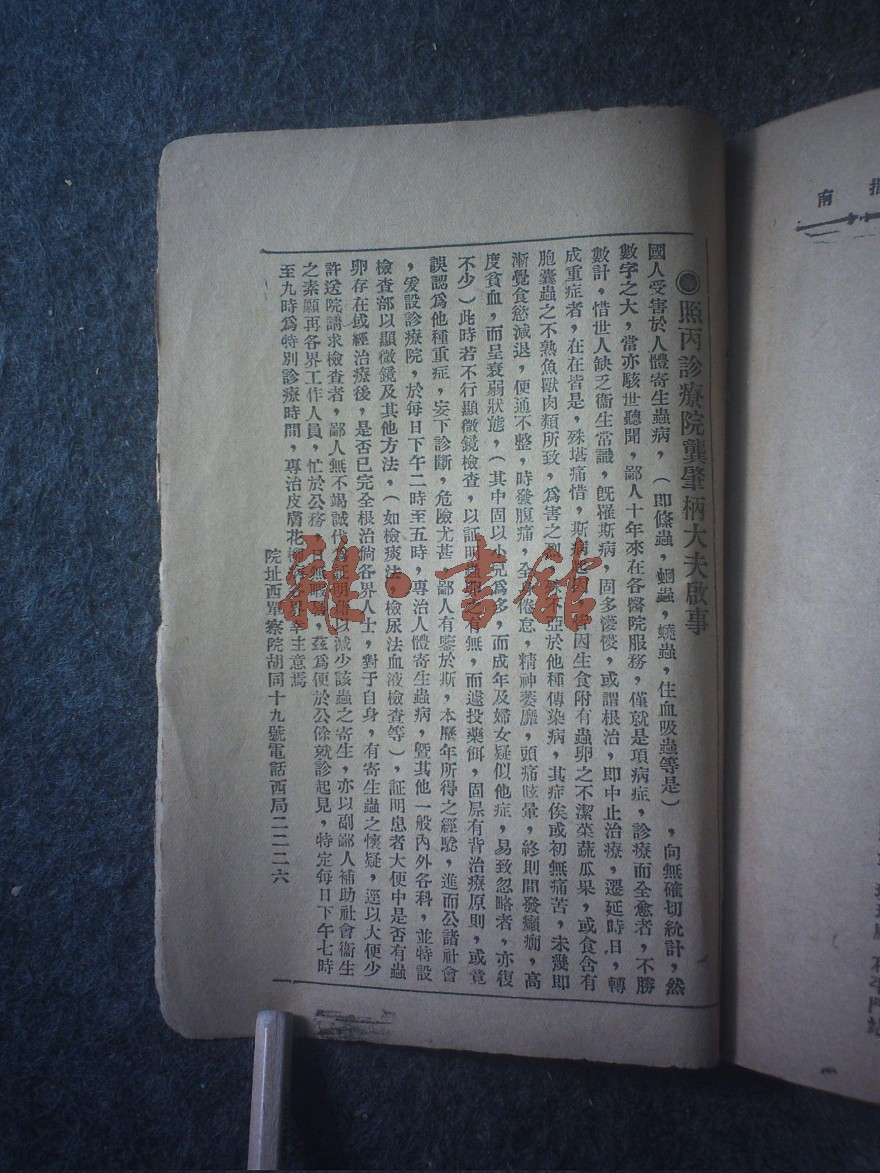 ●照丙診療院龔肇柄大夫啟事
國人受害於人體寄生蟲病，（即絛蟲，蛔蟲，蟯蟲，住血吸蟲等是），向無確切統計，然
數字之大，當亦駭世聽聞，鄙人十年來在各醫院服務，僅就是項病症，診療而全愈者，不勝
數計，惜世人缺乏衞生常識，旣罹斯病，固多懮懮，或謂根治，即中止治療，遷延時日，轉
成重症者，在在皆是，殊堪痛惜，斯病起因，皆因生食附有蟲卵之不潔菜蔬瓜果，或食含有
胞囊蟲之不熟魚獸肉類所致，爲害之烈，不亞於他種傳染病，其症俟或初無痛苦，未幾即
漸覺食慾減退，便通不整，時發腹痛，全身倦怠，精神萎靡，頭痛眩暈，終則間發癲癎，高
度貧血，而呈衰弱狀態，（其中固以小兒爲多，而成年及婦女疑似他症，易致忽略者，亦復
不少）此時若不行顯微鏡檢查，以証明蟲卵之有無，而遽投藥餌，固屬有背治療原則，或竟
誤認爲他種重症，妄下診斷，危險尤甚，鄙人有鑒於斯，本歷年所得之經驗，進而公諸社會
，爰設診療院，於每日下午二時至五時，專治人體寄生蟲病，曁其他一般內外各科，並特設
檢查部以顯微鏡及其他方法，（如檢痰法，檢尿法血液檢查等），証明患者大便中是否有蟲
卵存在或經治療後，是否已完全根治倘各界人士，對于自身，有寄生蟲之懷疑，逕以大便少
許送院請求檢查者，鄙人無不竭誠代爲証明藉以減少該蟲之寄生，亦以副鄙人補助社會衞生
之素願再各界工作人員，忙於公務，日無暇晷，茲爲便於公餘就診起見，特定每日下午七時
至九時爲特別診療時間，專治皮膚花柳各界幸主意焉
院址西單察院胡同十九號電話西局二二二六
雅·書館
南 指